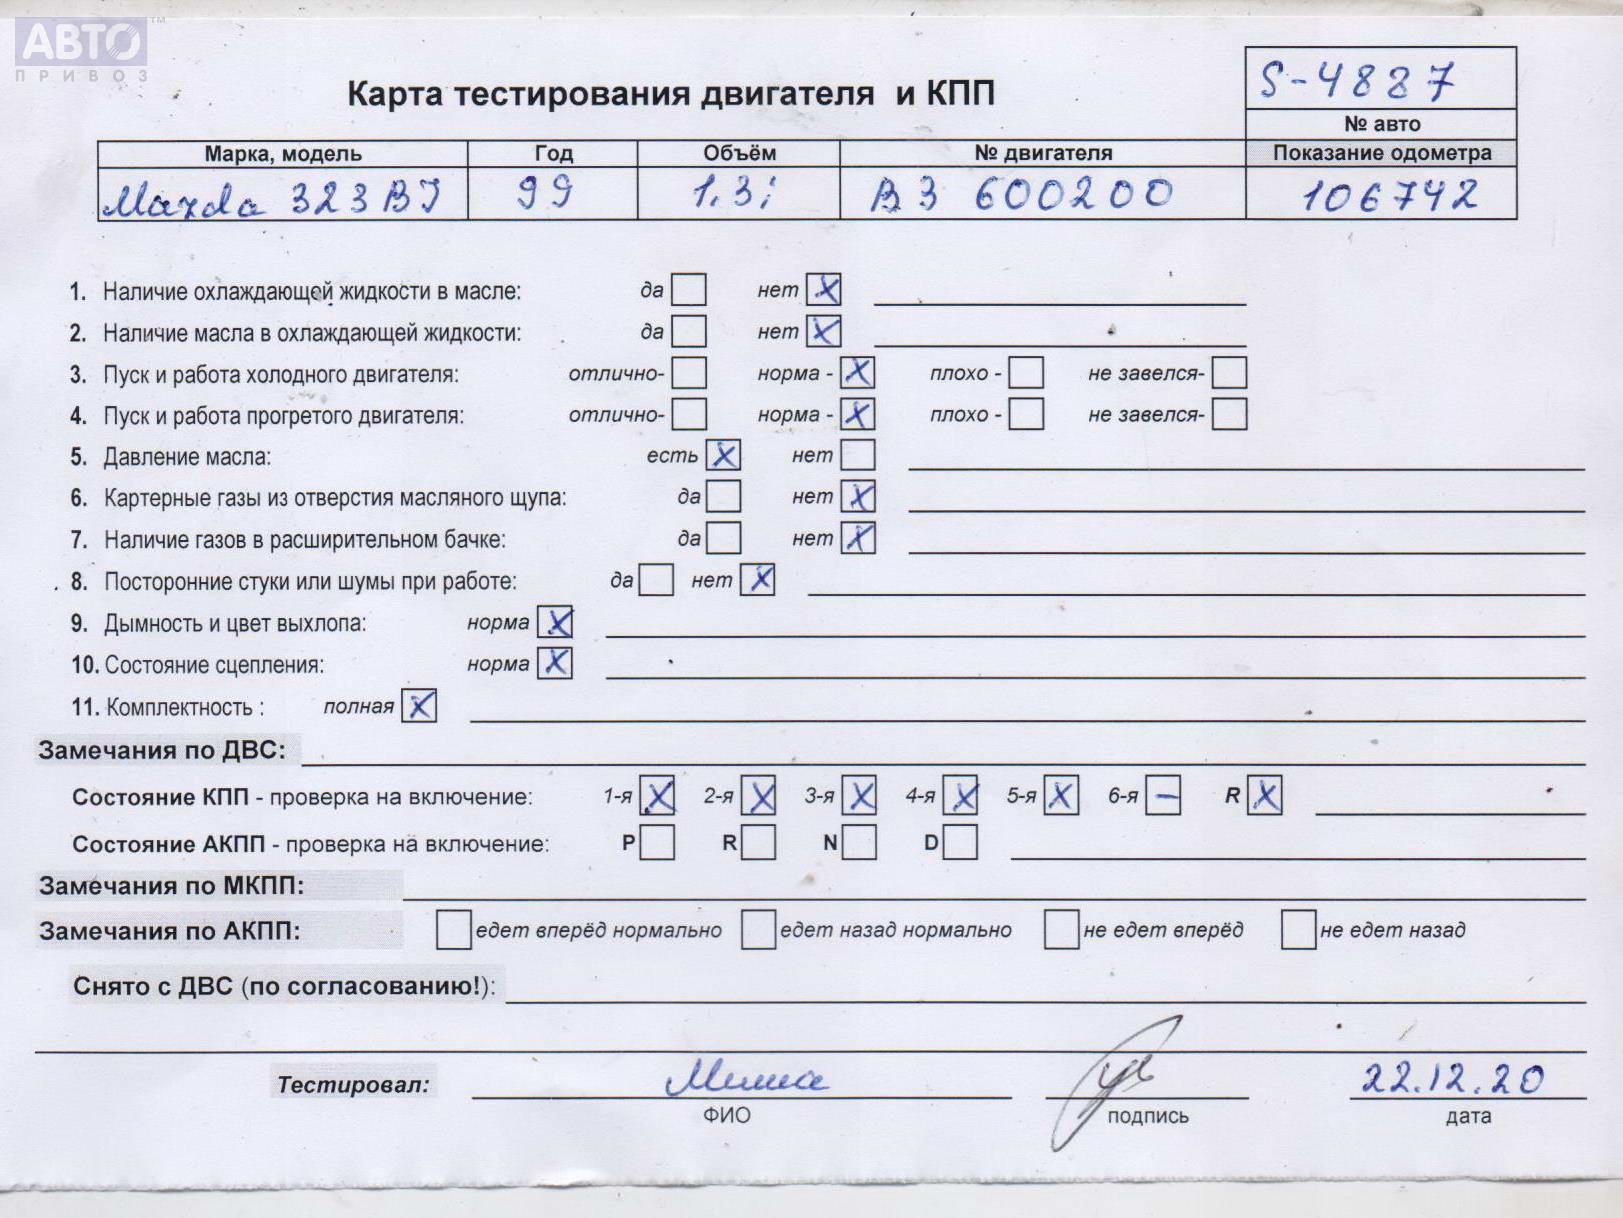 АВТО™
ПРИВОЗ
S-4887
Карта тестирования двигателя и КПП
№ авто
Марка, модель Год Объём № двигателя Показание одометра
Mazda 323 BJ 99 1,3i B3 600200 106742
1. Наличие охлаждающей жидкости в масле: да нет X
2. Наличие масла в охлаждающей жидкости: да нет X
3. Пуск и работа холодного двигателя: отлично- норма - X плохо - не завелся-
4. Пуск и работа прогретого двигателя: отлично- норма - X плохо - не завелся-
5. Давление масла: есть X нет
6. Картерные газы из отверстия масляного щупа: да нет X
7. Наличие газов в расширительном бачке: да нет X
8. Посторонние стуки или шумы при работе: да нет X
9. Дымность и цвет выхлопа: норма X
10. Состояние сцепления: норма X
11. Комплектность : полная X
Замечания по ДВС:
Состояние КПП - проверка на включение: 1-я X 2-я X 3-я X 4-я X 5-я X 6-я – R X
Состояние АКПП - проверка на включение: P R N D
Замечания по МКПП:
Замечания по АКПП: едет вперёд нормально едет назад нормально не едет вперёд не едет назад
Снято с ДВС (по согласованию!):
Тестировал: Миша 22.12.20
ФИО подпись дата